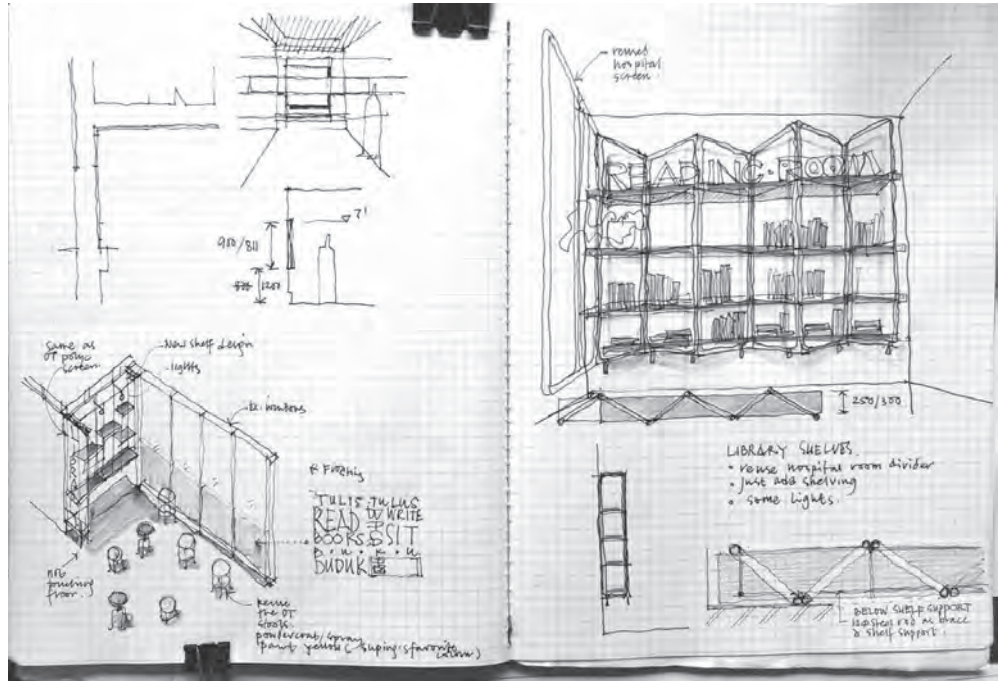 2'
900/811
1200
same as
OT polyc
screen
New shelf design
lights
Ex. windows
* Frosting
TULIS TULUS
READ WRITE
BOORS SIT
B•U•K•U
DUDUK
not
touching
floor.
Reuse
the OT
stools.
powdercoat/spray
paint yellow (
favorite
reused
hospital
screen.
READING•ROOM
250/300
LIBRARY SHELVES.
• reuse hospital room divider
• just add shelving
• some lights.
BELOW SHELF SUPPORT
steel rod as brace
& shelf support.